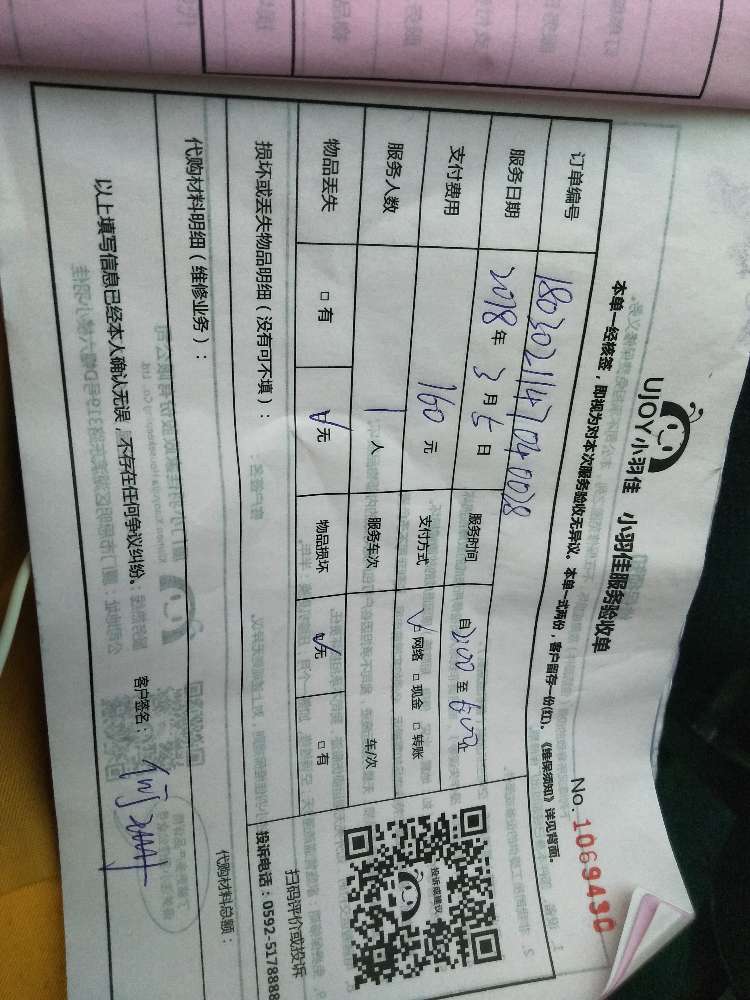 UJOY小羽佳 小羽佳服务验收单
No.1069430
本单一经核签，即视为对本次服务验收无异议。本单一式两份，客户留存一份(红)。《维保须知》详见背面。
订单编号 1803021147040028
服务日期 2018年3月5日 服务时间 自2:00至6:00止
支付费用 160元 支付方式 ☑网络 □现金 □转账
服务人数 1人 服务车次 车/次
物品丢失 □有 ☑无 物品损坏 ☑无 □有
投诉或建议
扫码评价或投诉
投诉电话：0592-5178888
损坏或丢失物品明细（没有可不填）：
代购材料明细（维修业务）：
代购材料总额：
以上填写信息已经本人确认无误，不存在任何争议纠纷。
客户签名：